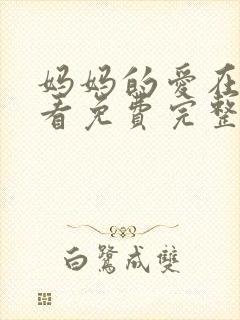 妈妈的爱在
看免费完整
白鹭成双